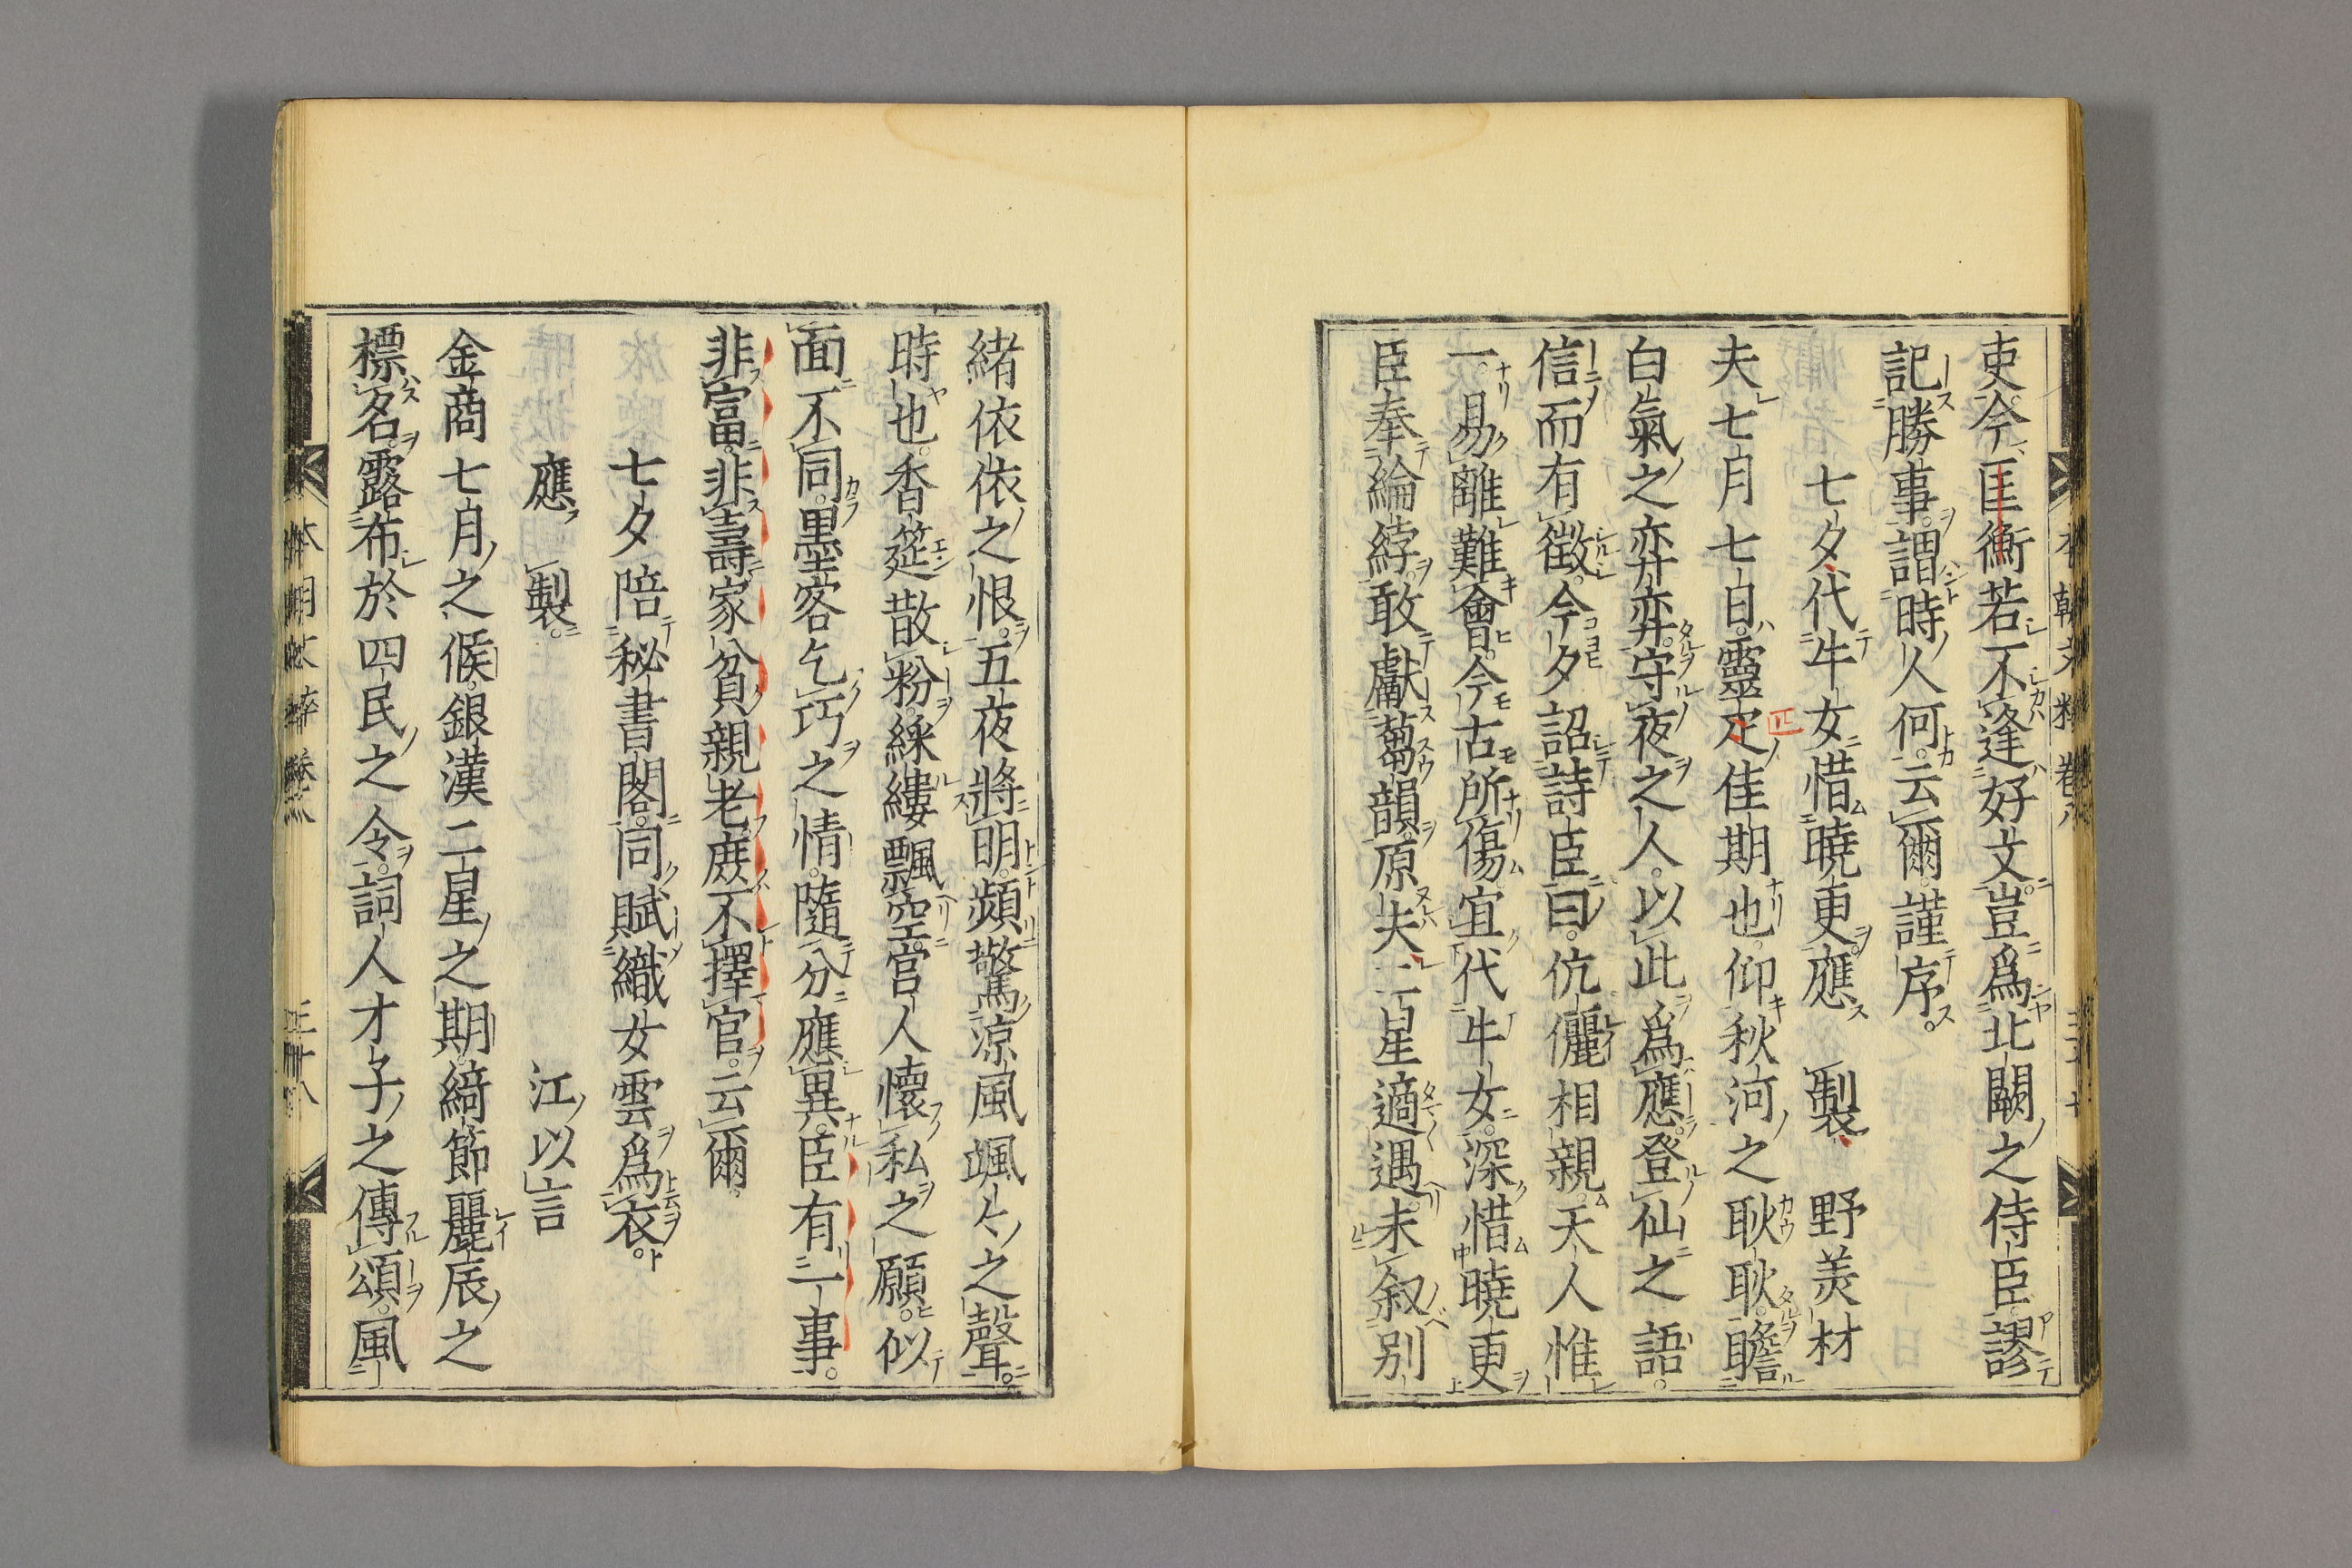 吏今匡衡若不逢好文豈爲北闕之侍臣謬
記勝事謂時人何云爾謹序
七夕代牛女惜曉更應製 野美材
夫七月七日靈疋佳期也仰秋河之耿耿瞻
白氣之弈弈守夜之人以此爲應登仙之語
信而有徵今夕詔詩臣曰伉儷相親天人惟
一易離難會今古所傷宜代牛女深惜曉更
臣奉綸綍敢獻蒭韻原夫二星適遇未叙别
緒依依之恨五夜將明頻驚涼風颯々之聲
時也香筵散粉綵縷飄空宮人懷私之願似
面不同墨客乞巧之情隨分應異臣有一事
非富非壽家貧親老庶不擇官云爾
七夕陪秘書閣同賦織女雲爲衣
應製 江以言
金商七月之候銀漢二星之期綺節麗辰之
標名露布於四民之令詞人才子之傳頌風
本朝文粹 卷八
三十七
本朝文粹 卷八
三十八
匹